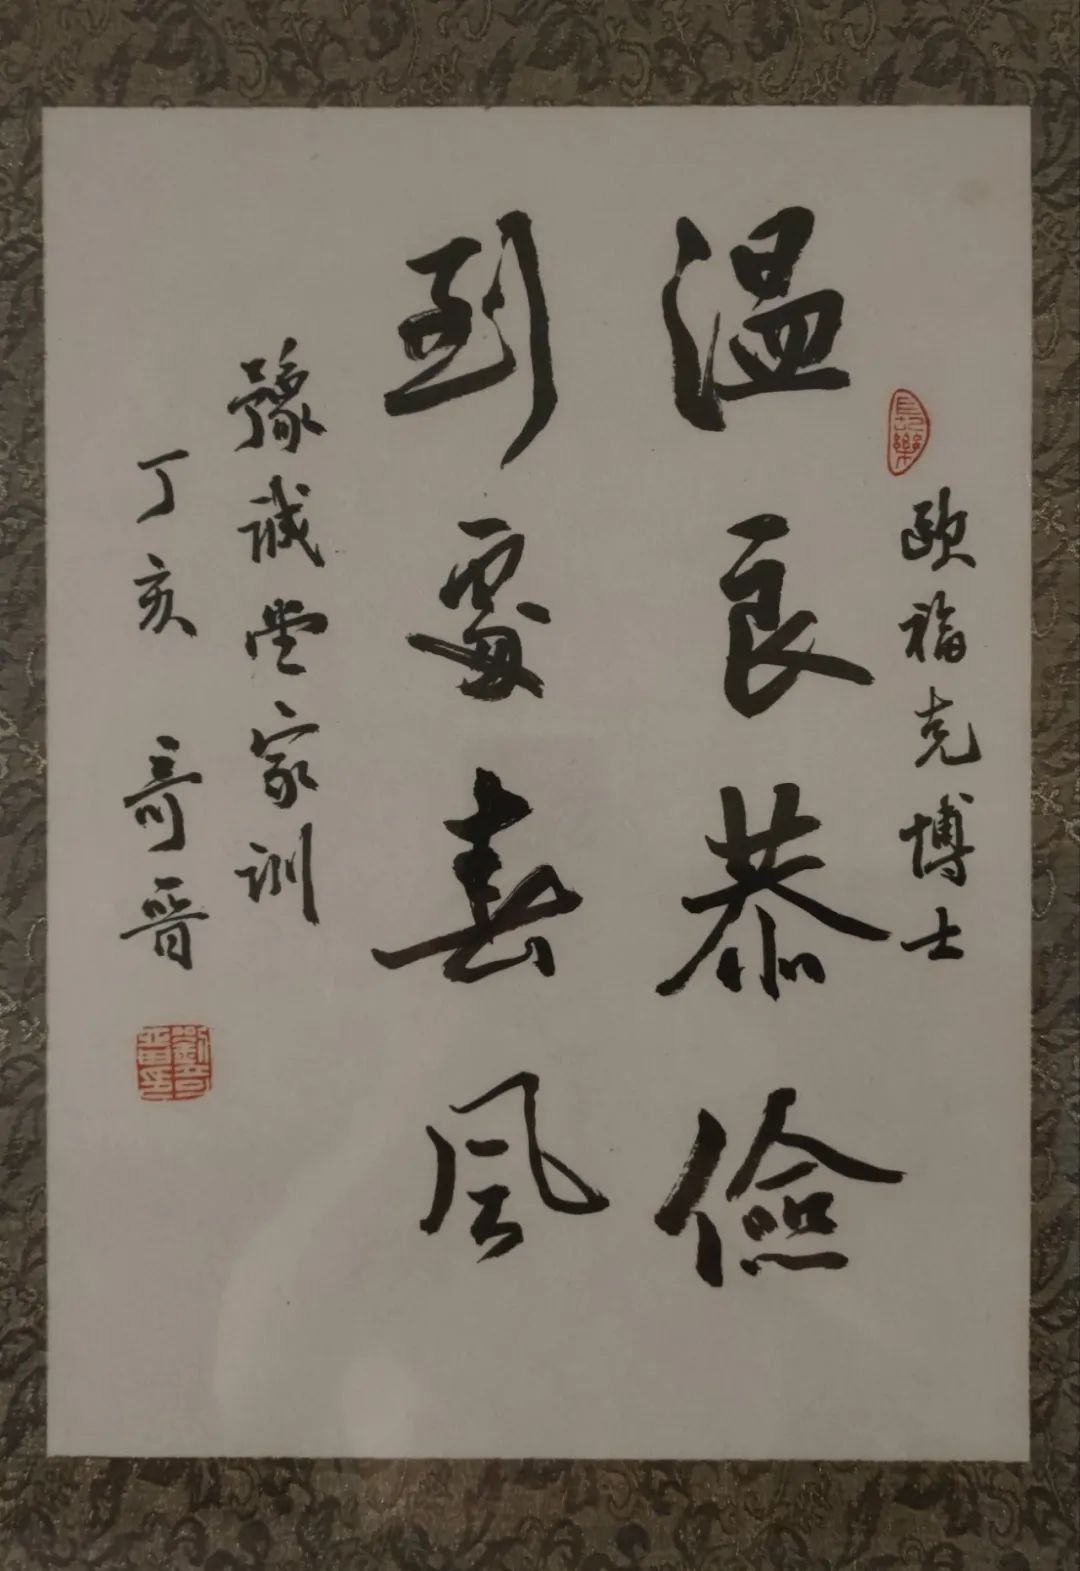 歐福克博士
温良恭儉
到處春風
豫誠堂家訓
丁亥 哥晋